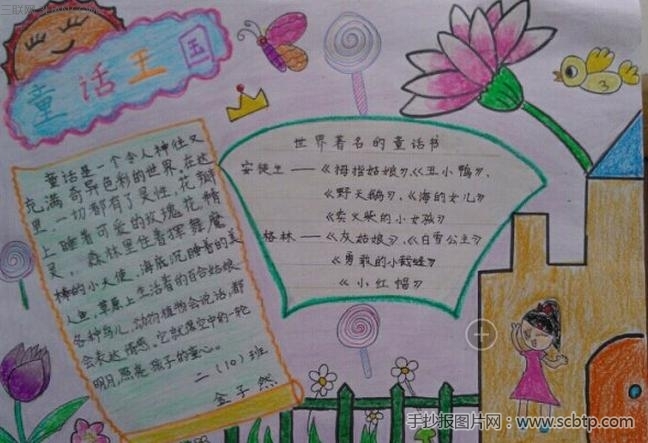 童话王国
童话是一个令人神往又
充满奇异色彩的世界,在这
里一切都有了灵性,花瓣
上睡着可爱的玫瑰花精
灵,森林里住着挥舞魔
棒的小天使,海底沉睡着的美
人鱼,草原上生活着的百合姑娘,
各种鸟儿,动物植物会说话,都
会表达情感,它就是空中的一轮
明月,照亮孩子的童心。
二(10)班
金子然
世界著名的童话书
安徒生——《拇指姑娘》、《丑小鸭》、
《野天鹅》、《海的女儿》
《卖火柴的小女孩》
格林——《灰姑娘》、《白雪公主》
《勇敢的小裁缝》
《小红帽》
3
手抄报图片网:www.scbtp.com